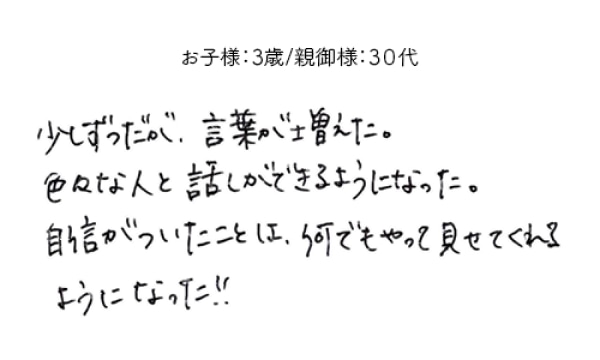 お子様：3歳/親御様：30代
少しずつだが、言葉が増えた。
色々な人と話しができるようになった。
自信がついたことは、何でもやって見せてくれる
ようになった!!